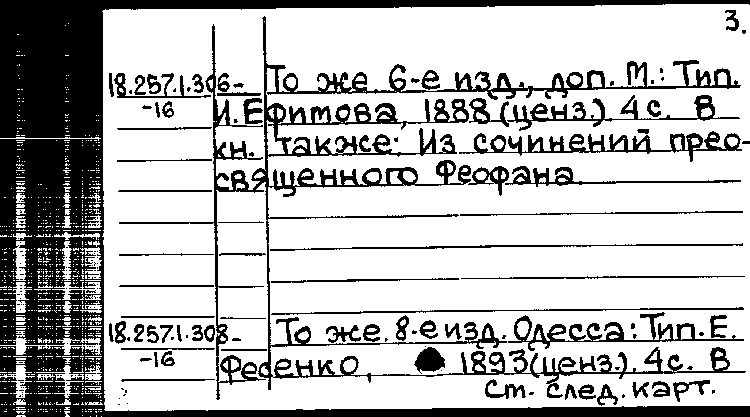 3.
18.257.1.306- То же. 6-е изд., доп. М.: Тип.
-16 И. Ефимова, 1888 (ценз.). 4 с. В
кн. также: Из сочинений прео-
священного Феофана.
18.257.1.308- То же. 8-е изд. Одесса: Тип. Е.
-16 Фесенко, 1893 (ценз.). 4 с. В
см. след. карт.